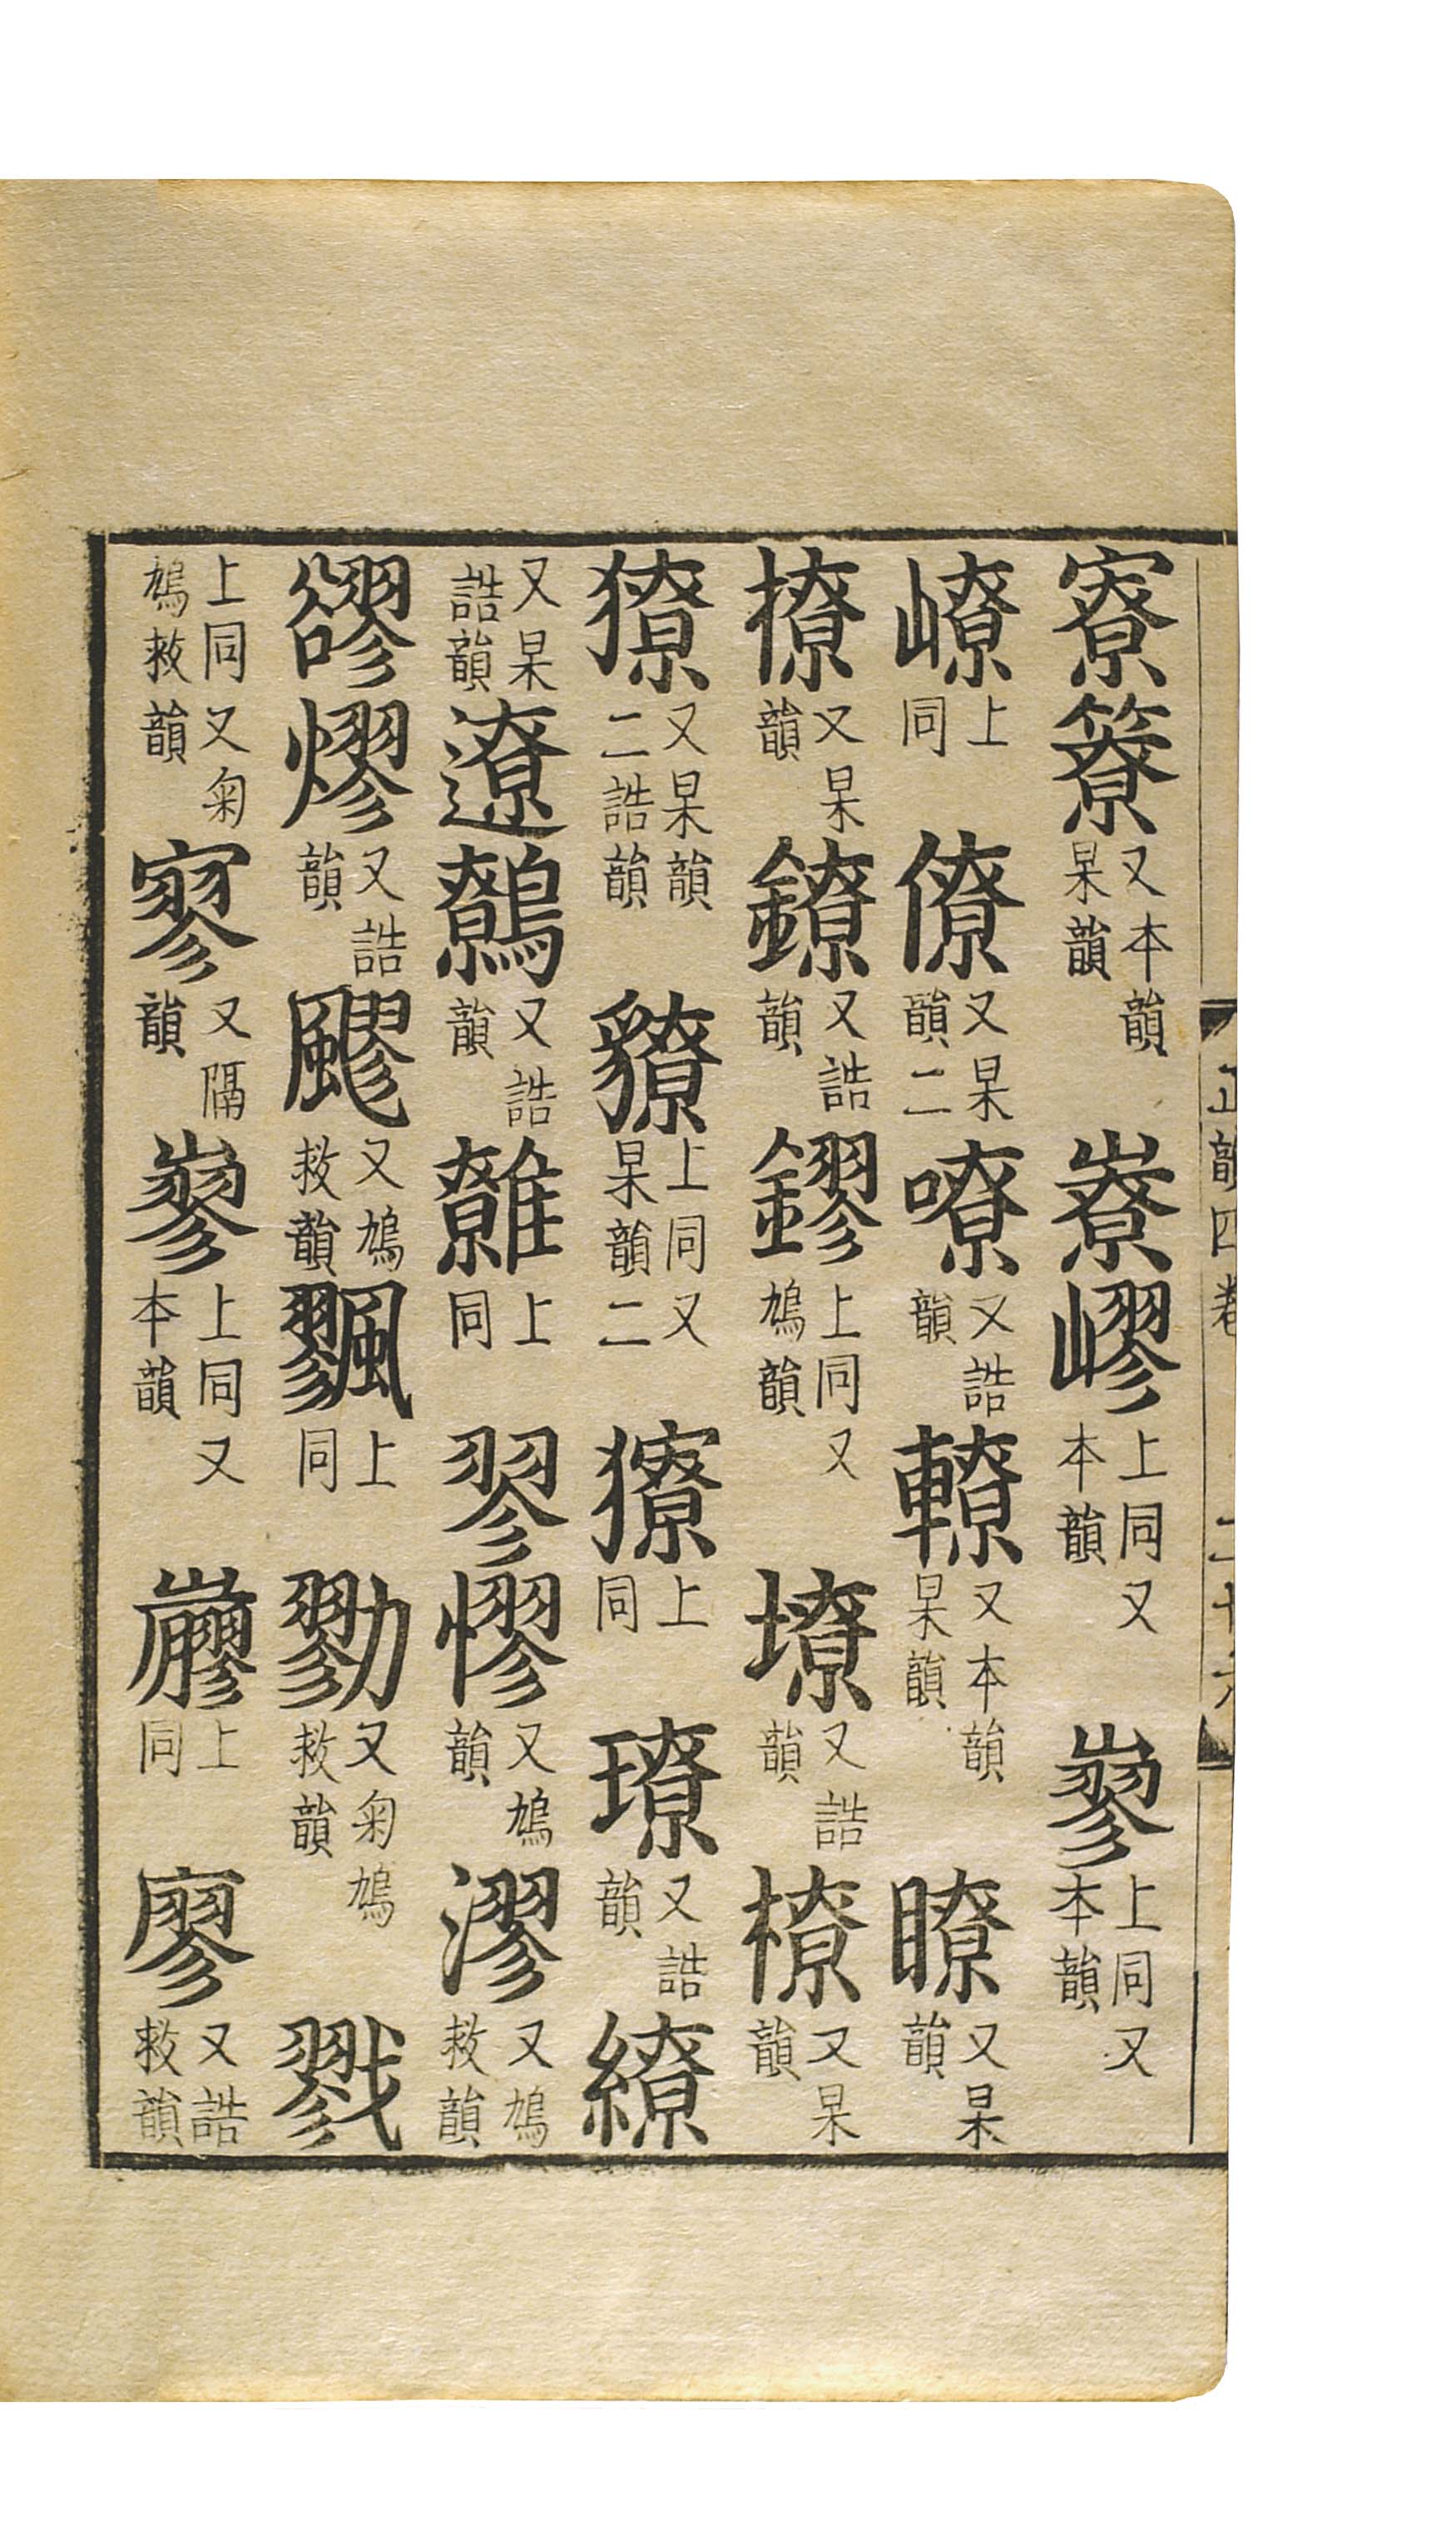 寮簝又本韻杲韻嶚嵺上同又本韻嵺上同又本韻
嶛上同僚又杲韻二嘹又誥韻轑又本韻杲韻瞭又杲
撩又杲韻鐐又誥韻鏐上同又鳩韻墩又誥韻橑又杲韻
獠又杲韻二誥韻䝤上同又杲韻二獠上同璙又誥韻繚
又杲誥韻遼鷯又誥韻䨅上同翏憀又鳩韻漻又鳩救韻
豂熮又誥韻飂又鳩救韻飂上同勠又菊鳩救韻戮
上同又菊鳩救韻寥又隔韻嵺上同又本韻上同廖又誥救韻
正韻四卷